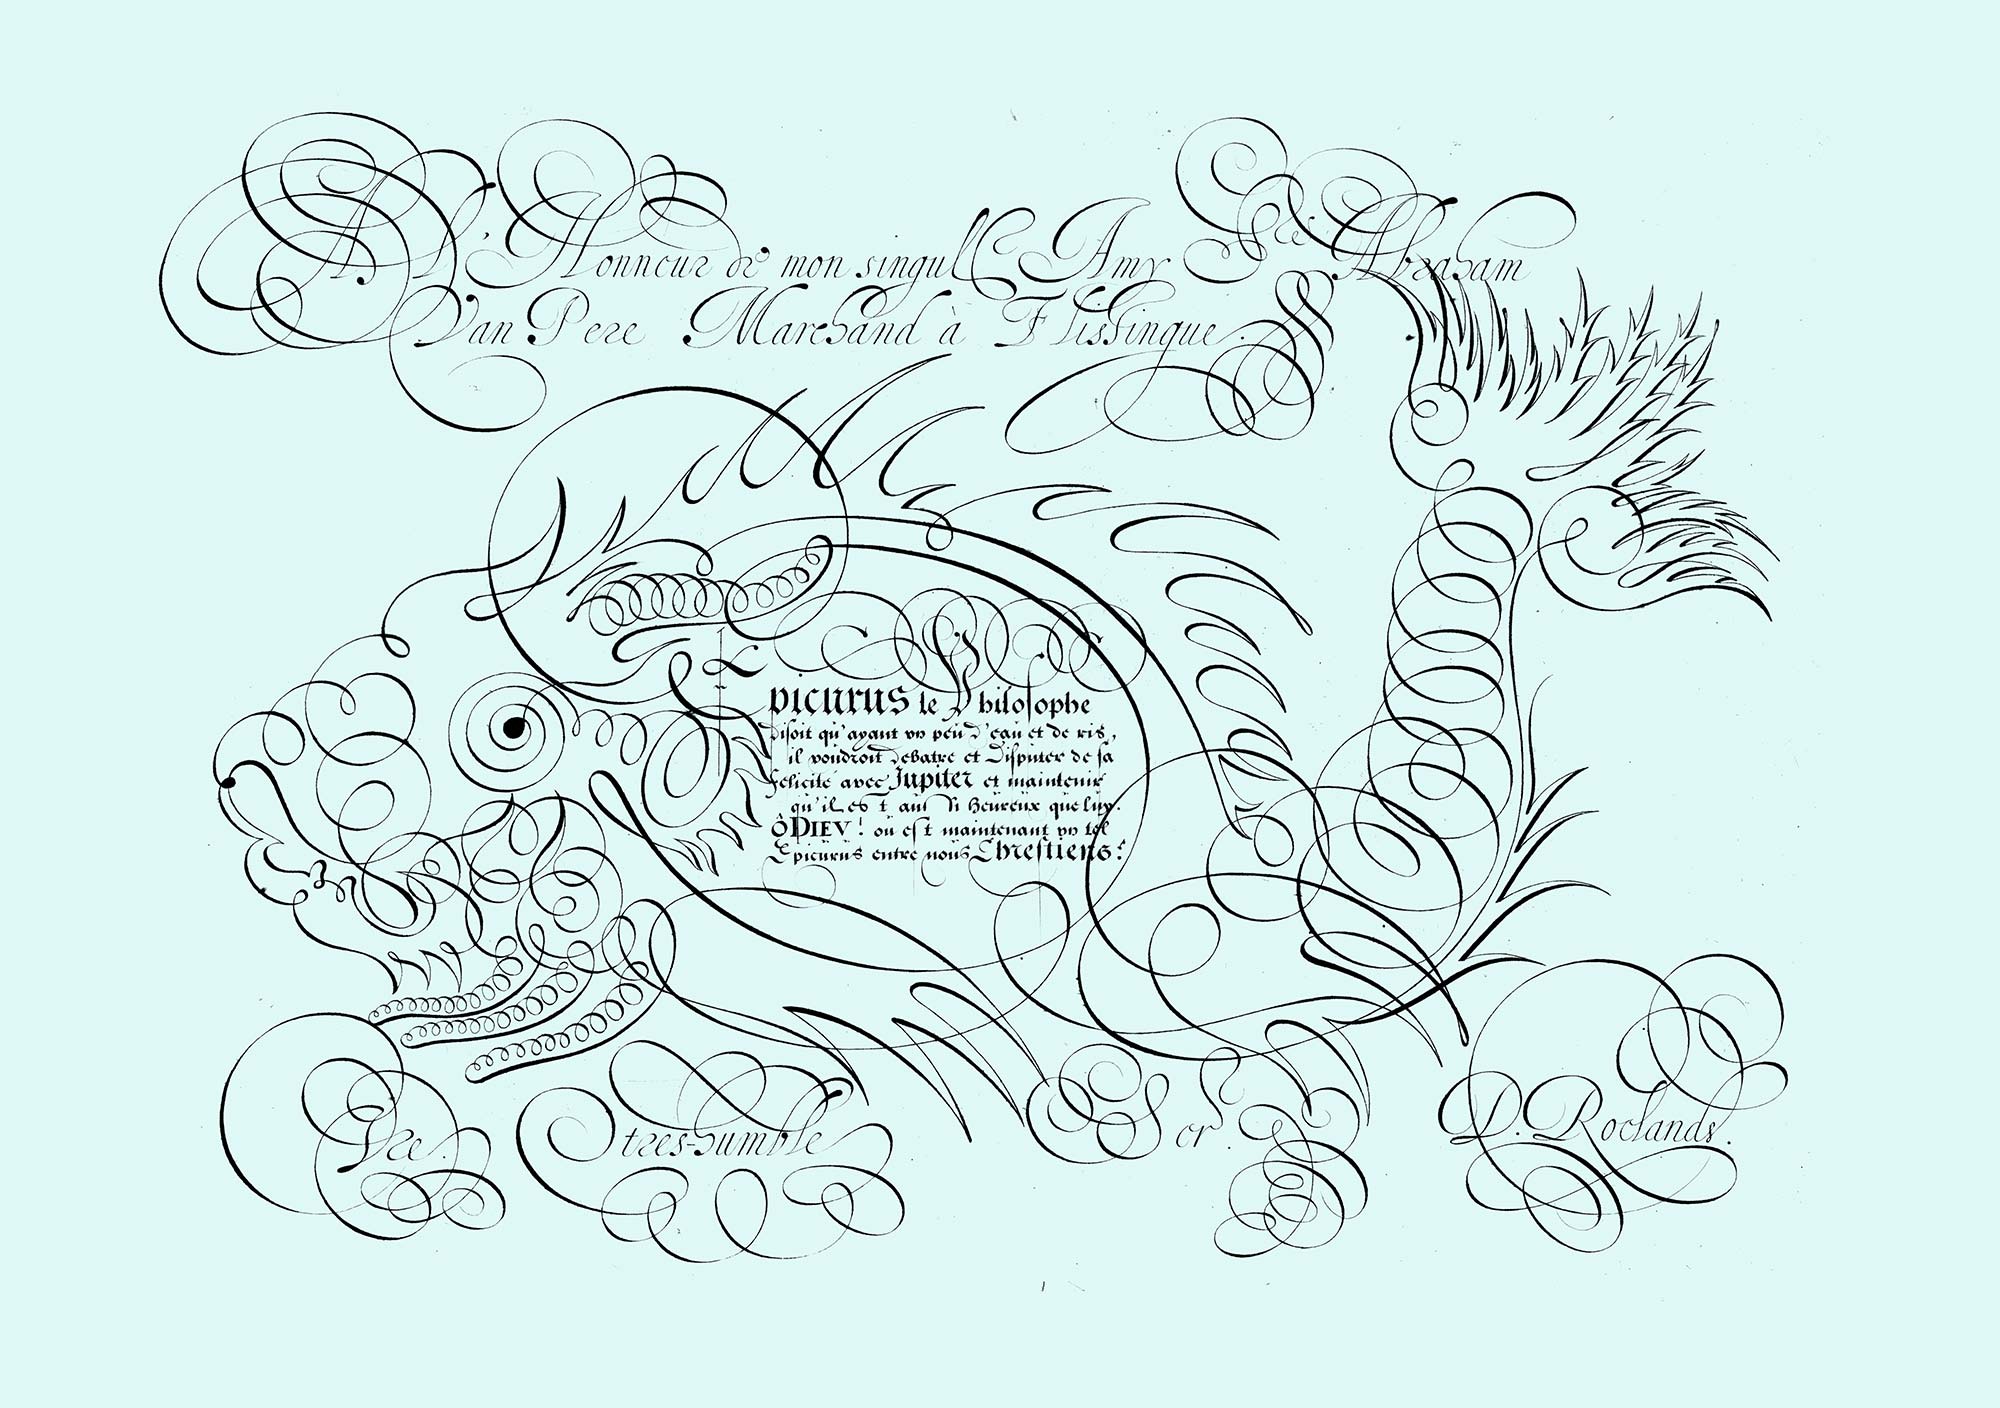 A l'Honneur de mon singulr Amy Sre Abraham
Van Pere Marchand à Flissingue.
Epicurus le Philosophe
disoit qu'ayant vn peu d'eau et de ris,
il voudroit debatre et disputer de sa
felicité avec Jupiter et maintenir
qu'il est aussi heureux que luy.
ô DIEV! où est maintenant vn tel
Epicurus entre nous Chrestiens?
Vre. tres-humble Sor. D. Roelands.